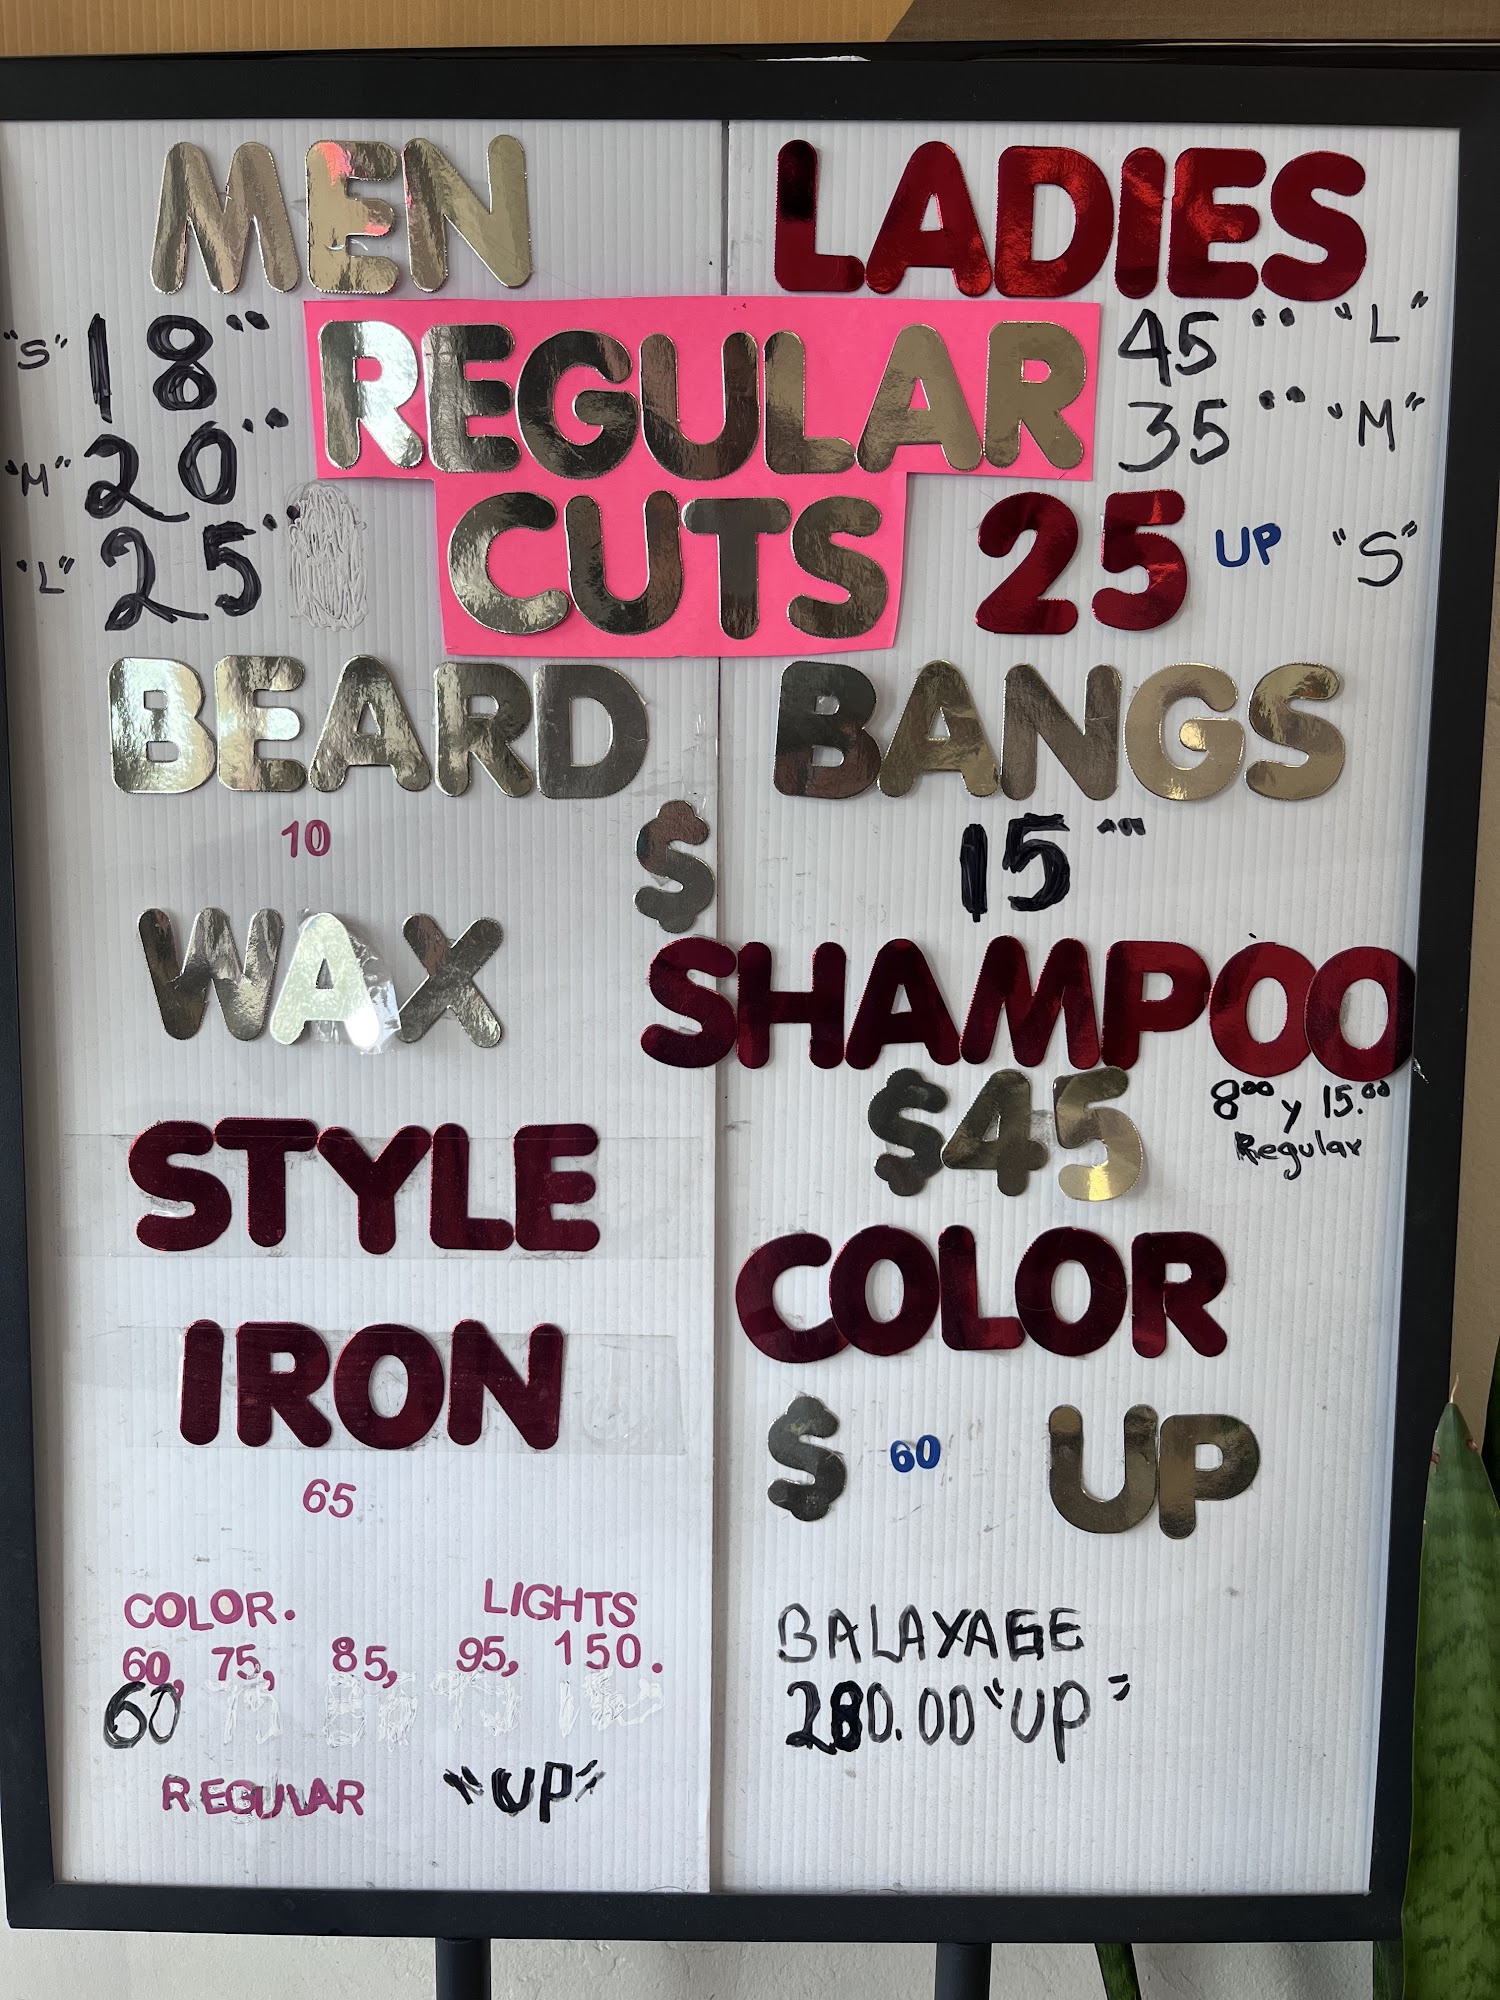 MEN LADIES
"S" 18°° REGULAR 45°° "L"
"M" 20°° 35°° "M"
"L" 25°° CUTS 25 UP "S"
BEARD BANGS
10 $ 15°°
WAX SHAMPOO
$45 8°° y 15.°°
Regular
STYLE COLOR
IRON $ 60 UP
65
COLOR. LIGHTS
60, 75, 85, 95, 150.
60
REGULAR "UP"
BALAYAGE
280.00 "UP"